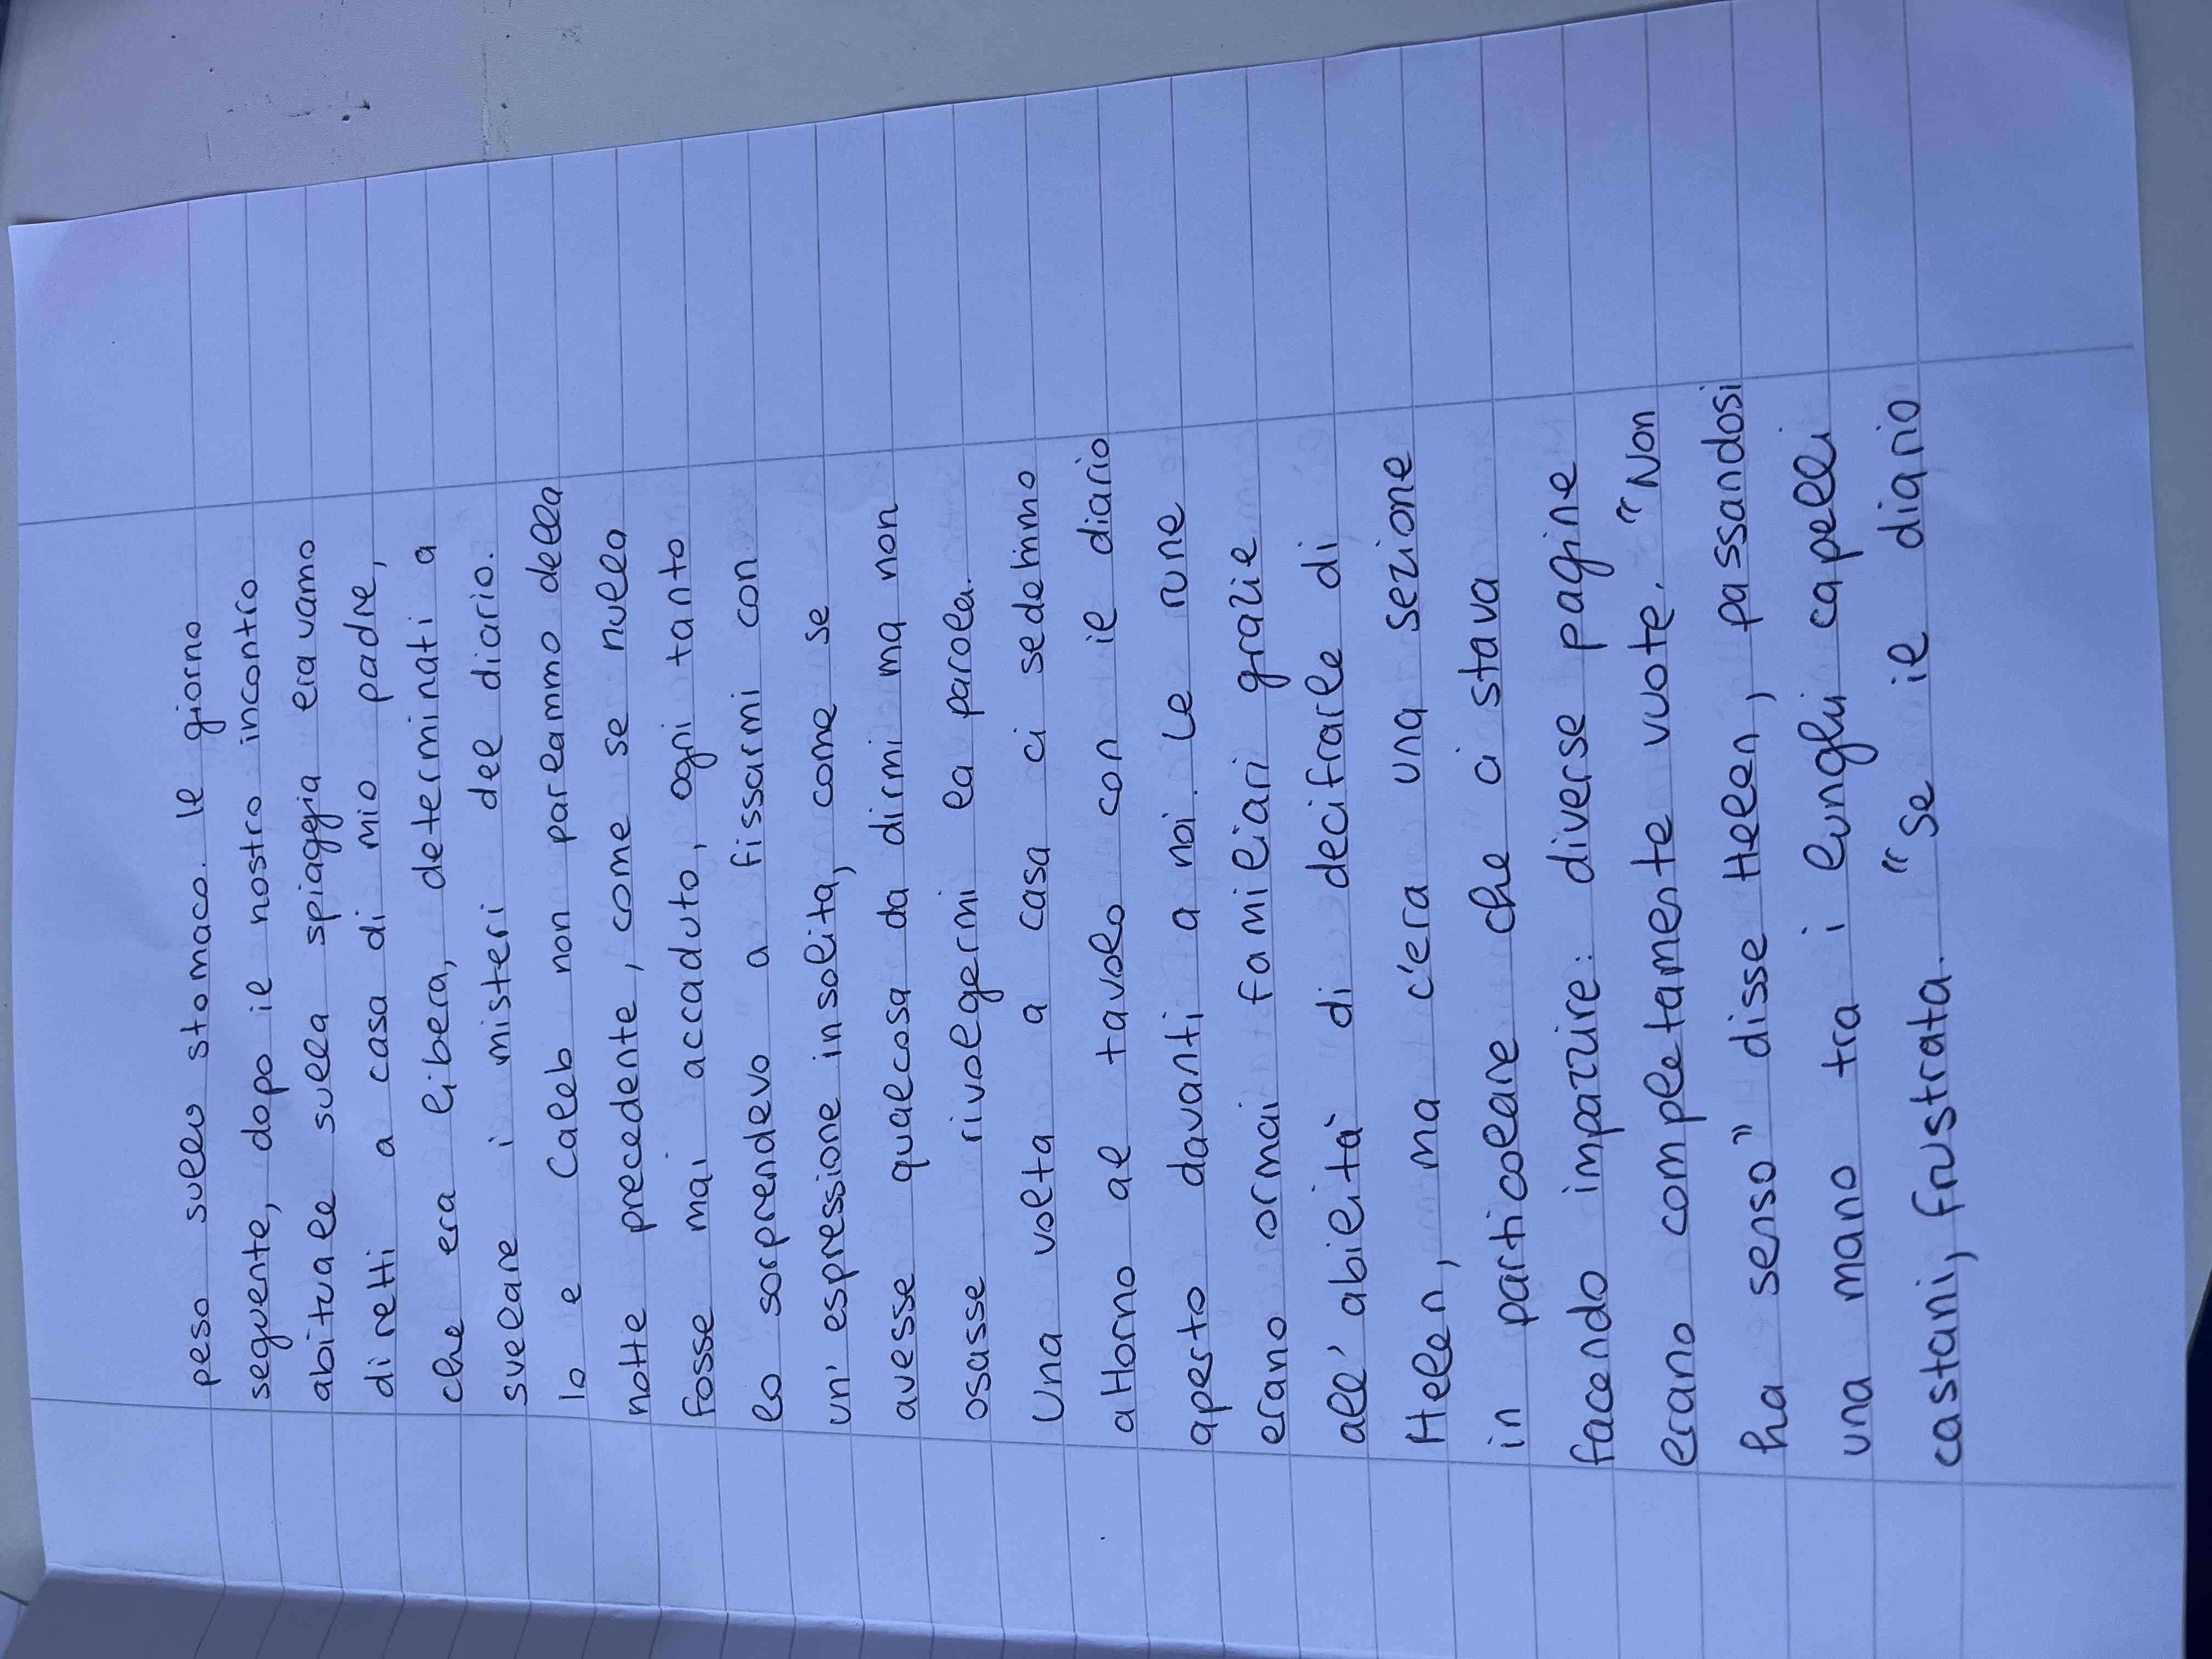 peso sullo stomaco. Il giorno
seguente, dopo il nostro incontro
abituale sulla spiaggia eravamo
diretti a casa di mio padre,
che era libera, determinati a
svelare i misteri del diario.
Io e Caleb non parlammo della
notte precedente, come se nulla
fosse mai accaduto, ogni tanto
lo sorprendevo a fissarmi con
un' espressione insolita, come se
avesse qualcosa da dirmi ma non
osasse rivolgermi la parola.
Una volta a casa ci sedemmo
attorno al tavolo con il diario
aperto davanti a noi. Le rune
erano ormai familiari grazie
all' abilità di decifrarle di
Helen, ma c'era una sezione
in particolare che ci stava
facendo impazzire: diverse pagine
erano completamente vuote. "Non
ha senso" disse Helen, passandosi
una mano tra i lunghi capelli
castani, frustrata. "Se il diario